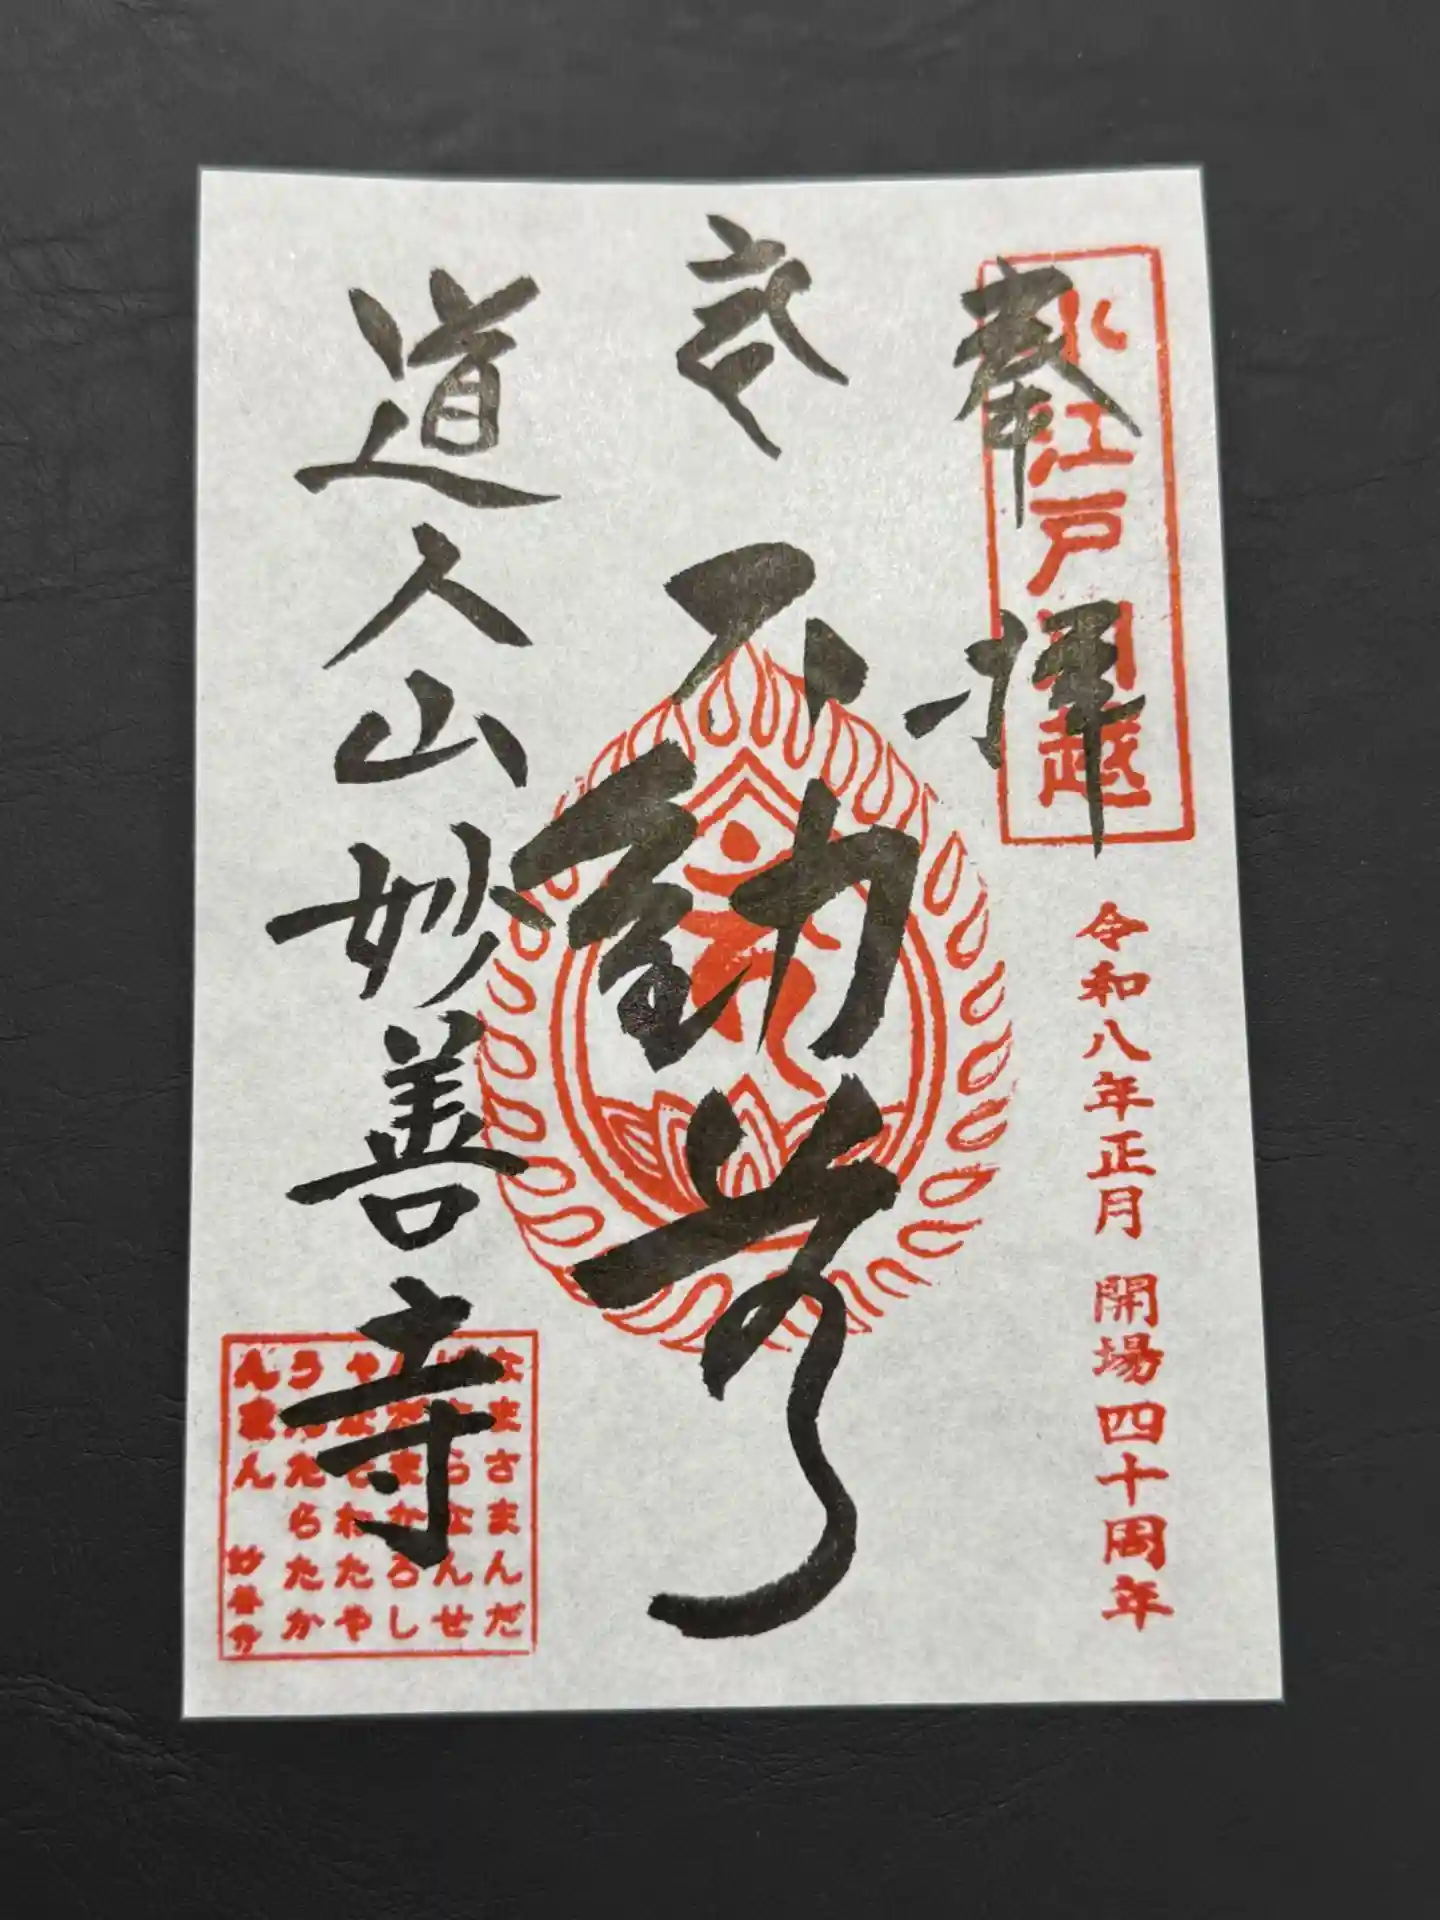 奉拝
小江戸川越
令和八年正月 開場四十周年
不動尊
道人山妙善寺
なまさまんだ
ばさらなんせ
んだまかろし
やなそわたや
うんたらたか
んまん 妙善寺